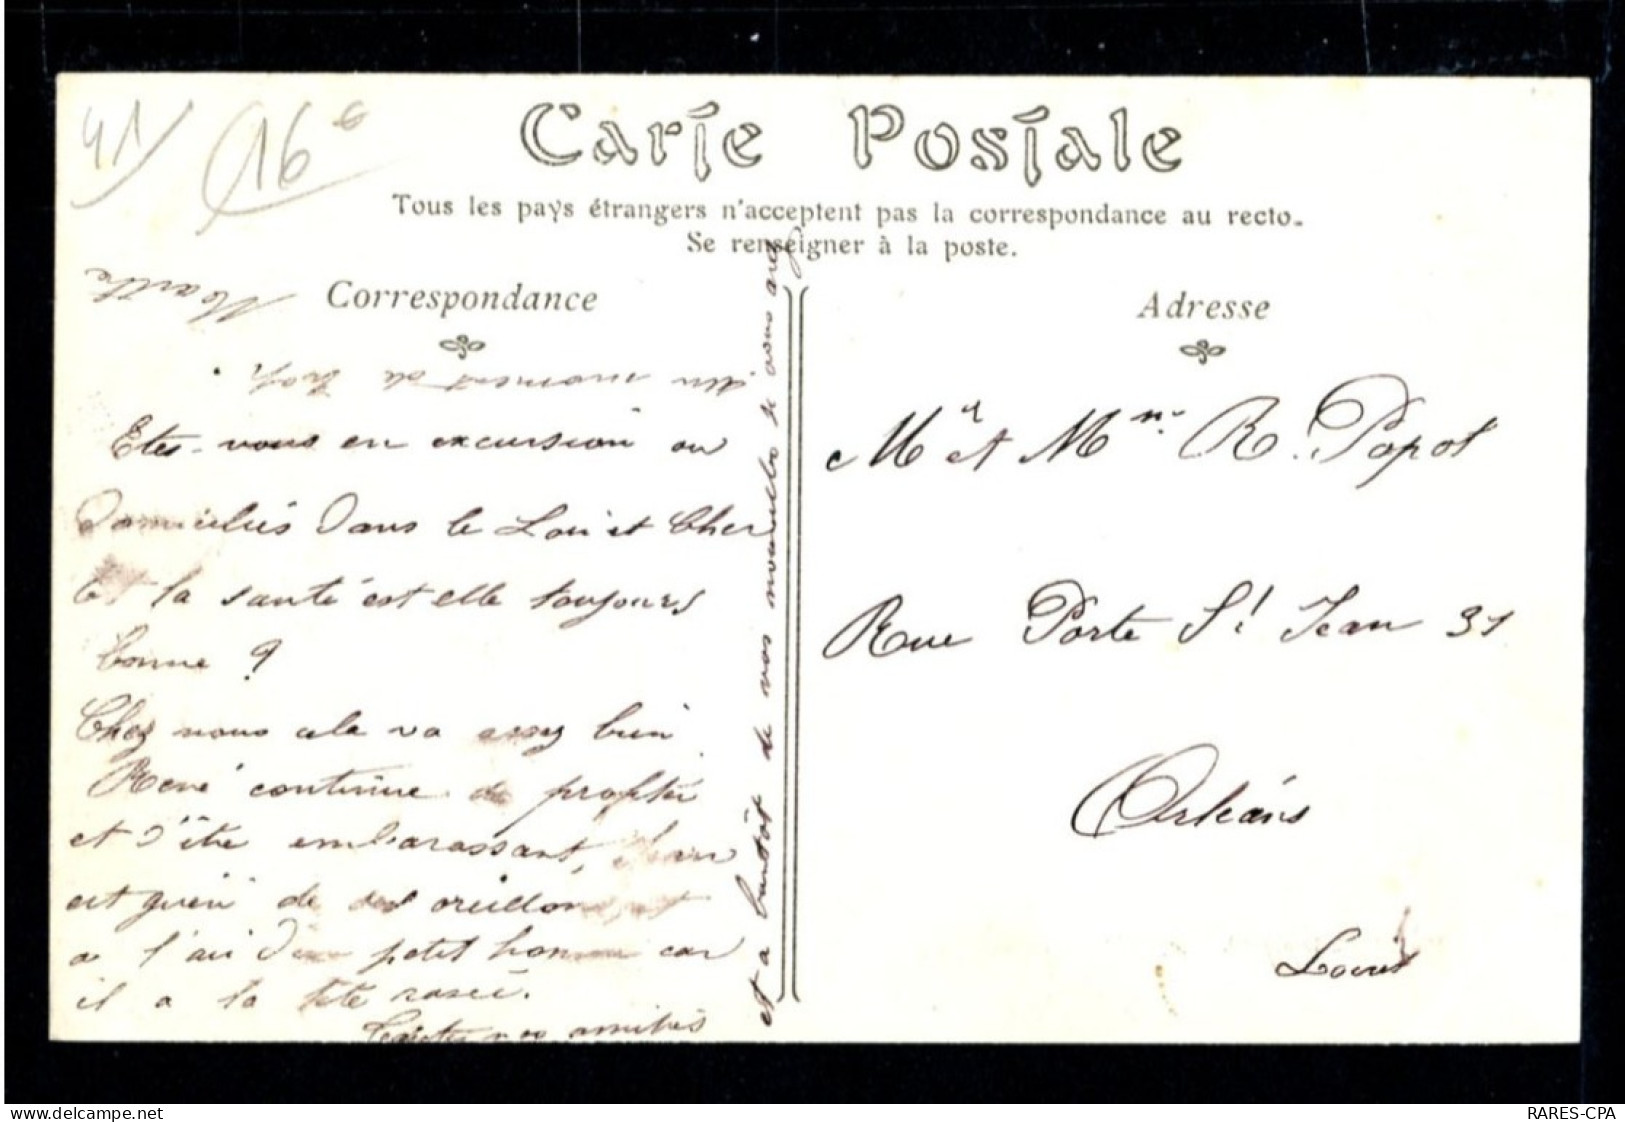 41/ 16€
Carte Postale
Tous les pays étrangers n'acceptent pas la correspondance au recto.
Se renseigner à la poste.
Correspondance
Adresse
Etes-vous en excursion ou
Domiciliés Dans le Loir et Cher
Et la santé est elle toujours
bonne ?
Chez nous cela va assez bien
René continue de profiter
et d'être embarassant, Jean
est guéri de ses oreillons et
a l'air d'un petit homme car
il a la tête rasée.
Toutes nos amitiés
et a bientôt de vos nouvelles si vous avez
un moment de
Marthe
Mr et Mme R. Popot
Rue Porte St Jean 31
Orléans
Loiret
delcampe.net
RARES-CPA